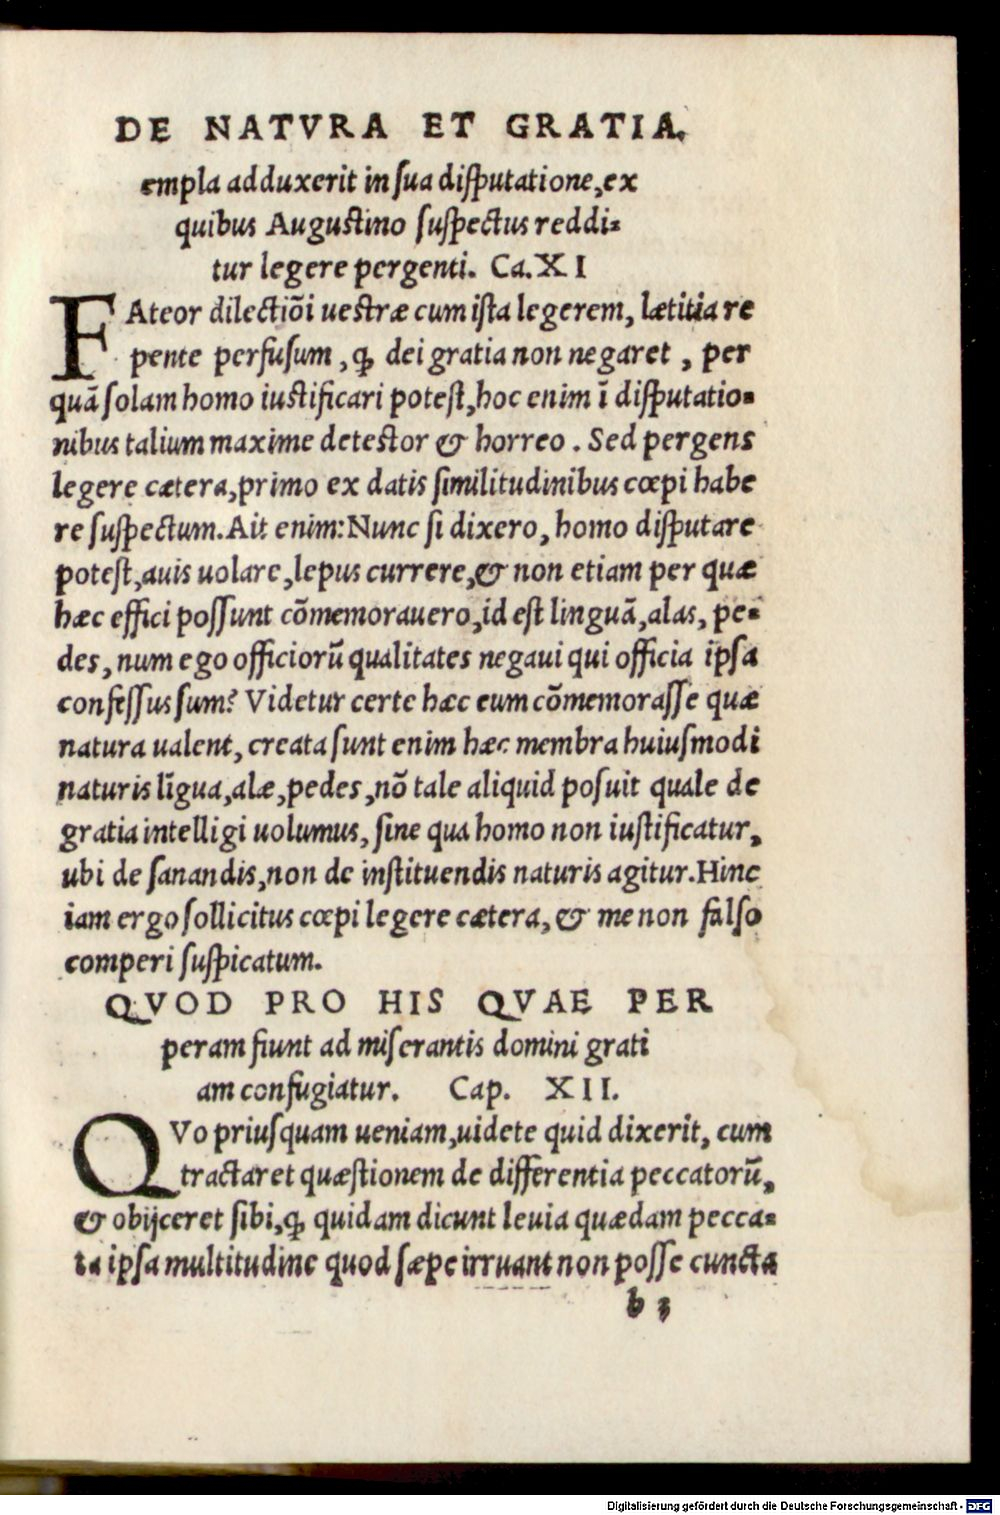 DE NATVRA ET GRATIA.
empla adduxerit in sua disputatione, ex
quibus Augustino suspectus reddi-
tur legere pergenti. Ca. XI
FAteor dilectiōi uestræ cum ista legerem, lætitia re
pente perfusum, ꝙ dei gratia non negaret, per
quā solam homo iustificari potest, hoc enim ī disputatio-
nibus talium maxime detestor & horreo. Sed pergens
legere cætera, primo ex datis similitudinibus cœpi habe
re suspectum. Ait enim: Nunc si dixero, homo disputare
potest, auis uolare, lepus currere, & non etiam per quæ
hæc effici possunt cōmemorauero, id est linguā, alas, pe-
des, num ego officiorū qualitates negaui qui officia ipsa
confessus sum? Videtur certe hæc eum cōmemorasse quæ
natura ualent, creata sunt enim hæc membra huiusmodi
naturis līgua, alæ, pedes, nō tale aliquid posuit quale de
gratia intelligi uolumus, sine qua homo non iustificatur,
ubi de sanandis, non de instituendis naturis agitur. Hinc
iam ergo sollicitus cœpi legere cætera, & me non falso
comperi suspicatum.
QVOD PRO HIS QVAE PER
peram fiunt ad miserantis domini grati
am confugiatur. Cap. XII.
QVo priusquam ueniam, uidete quid dixerit, cum
tractaret quæstionem de differentia peccatorū,
& obijceret sibi, ꝙ quidam dicunt leuia quædam pecca-
ta ipsa multitudine quod sæpe irruant non posse cuncta
b 3
Digitalisierung gefördert durch die Deutsche Forschungsgemeinschaft - DFG